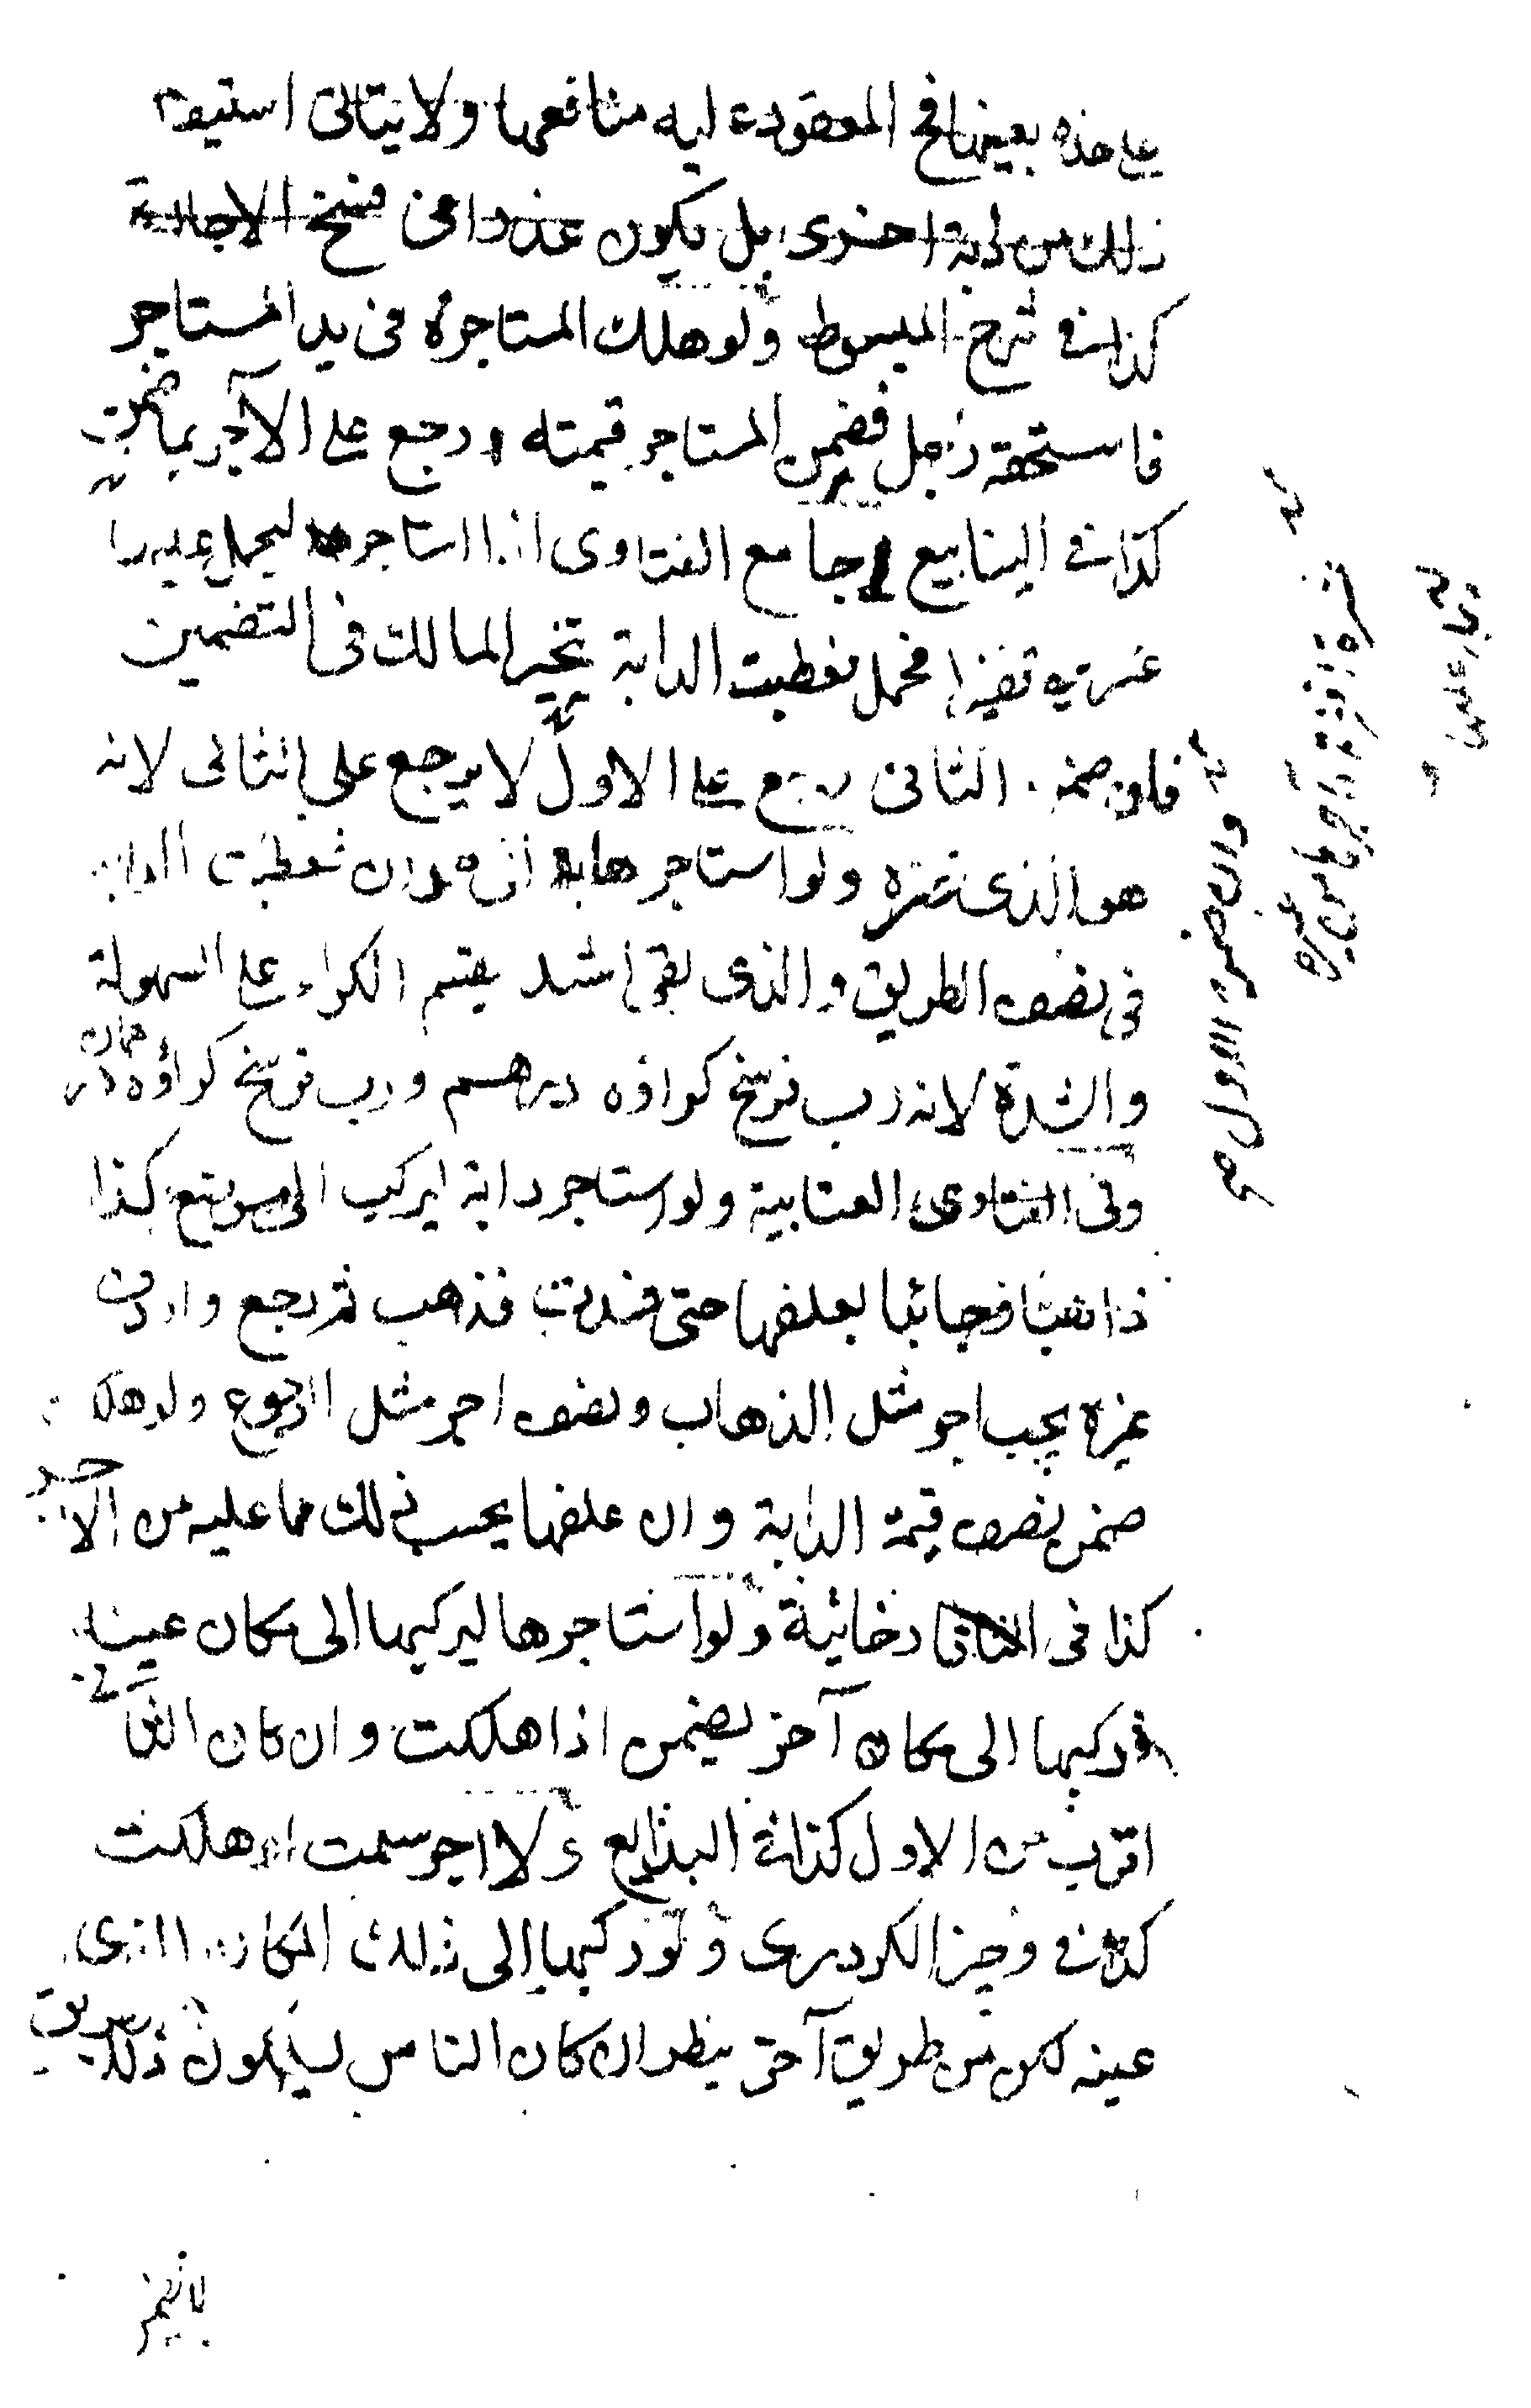 على هذه بعينها فح المعقود عليه منافعها ولا يتاتى استيفاء
ذلك من دابة اخرى بل يكون عذرا فى فسخ الاجارة
كذا فى شرح المبسوط ولو هلك المستاجرة فى يد المستاجر
فاستحقه رجل فضمن المستاجر قيمته ورجع على الآجر بما ضمن
كذا فى الينابيع وجامع الفتاوى اذا استاجر ليحمل عليها
عشرين قفيزا فحمل فعطبت الدابة تخير المالك فى التضمين
فلو ضمن الثانى رجع على الاول لا يرجع على الثانى لانه
هو الذى غره ولو استاجر دابة الى همدان فعطبت الدابة
فى نصف الطريق والذى بقى اشد يقسم الكراء على السهولة
والشدة لانه رب فرسخ كراؤه درهم ورب فرسخ كراؤه درهمان
وفى الفتاوى العتابية ولو استاجر دابة ليركب الى موضع كذا
ذاهبا وجائيا بعلفها حتى فذهب ثم رجع واردف
غيره يجب اجر مثل الذهاب ونصف اجر مثل الرجوع ولو هلك
ضمن نصف قيمة الدابة وان علفها يحسب ذلك مما عليه من الاجر
كذا فى التاتارخانية ولو استاجرها ليركبها الى مكان عينه
فركبها الى مكان آخر يضمن اذا هلكت وان كان الثانى
اقرب من الاول كذا فى البدايع ولا اجر سلمت او هلكت
كذا فى وجيز الكردرى ولو ركبها الى ذلك المكان الذى
عينه لكن من طريق آخر ينظر ان كان الناس يسلكون ذلك الطريق
وان ضمن الاول